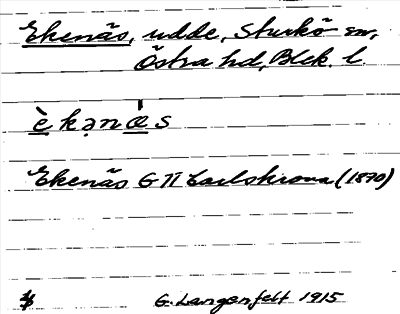 Ekenäs, udde, Sturkö sn,
Östra hd, Blek. l.
èkənæ̍s
Ekenäs GTI Carlskrona (1870)
G. Langenfelt 1915